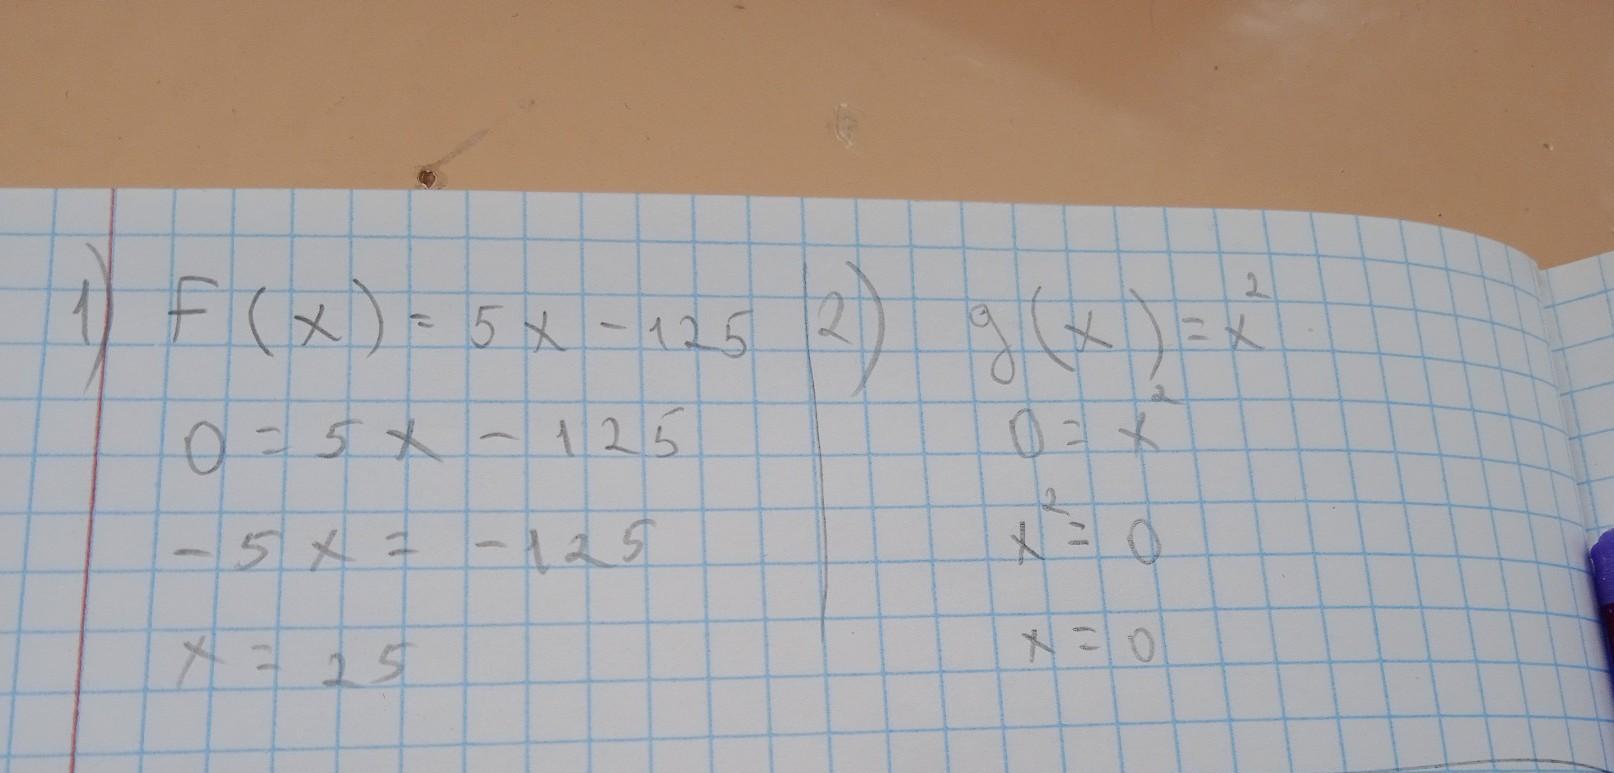 1) F(x) = 5x - 125
0 = 5x - 125
- 5x = - 125
x = 25
2) g(x) = x²
0 = x²
x² = 0
x = 0